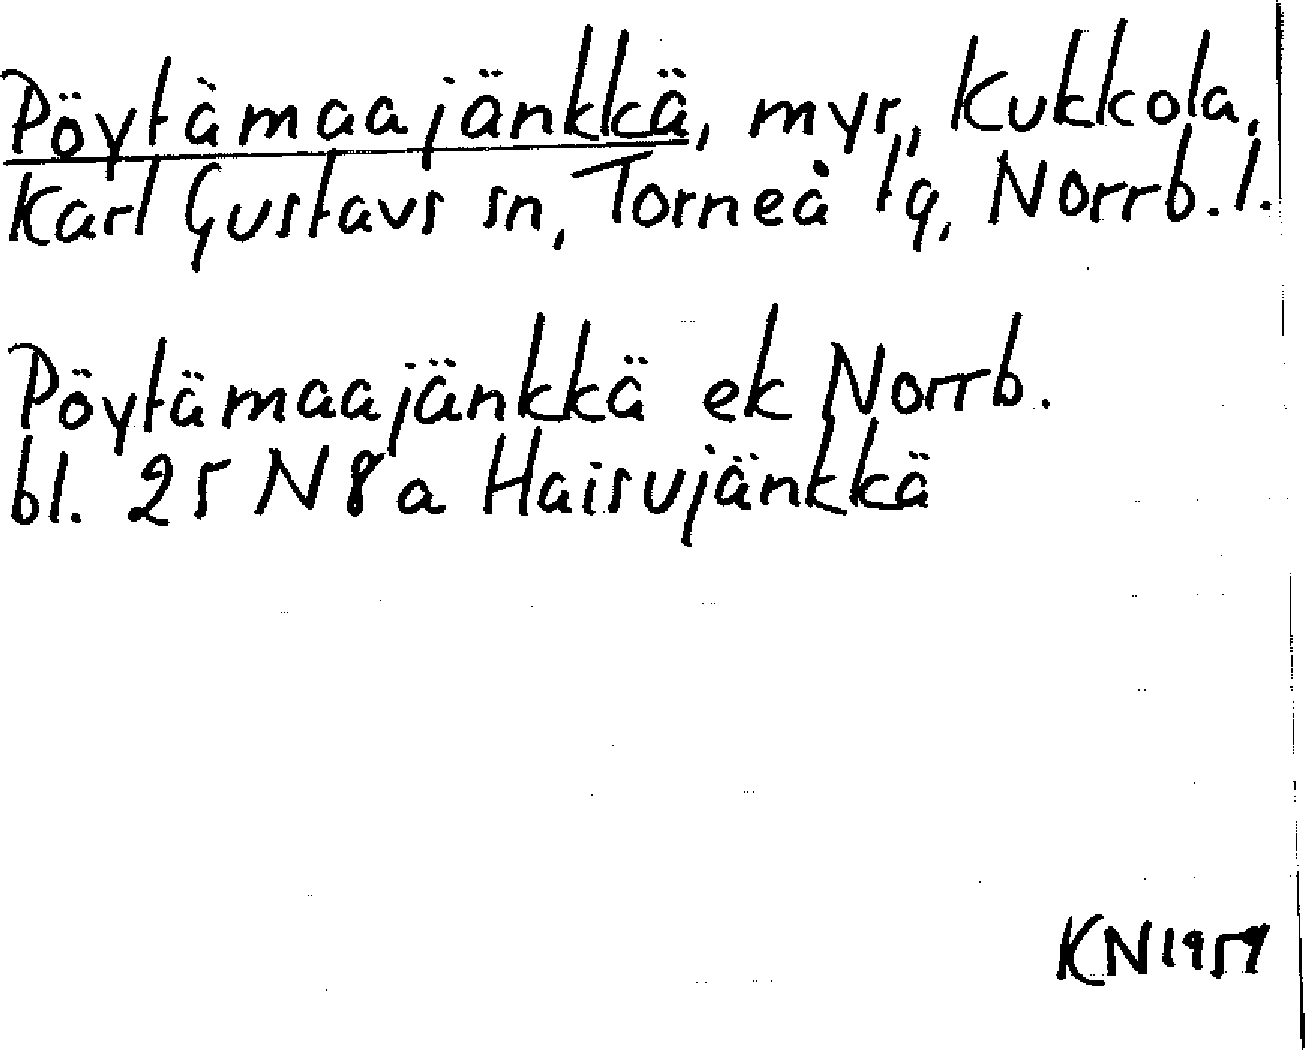 Pöytämaajänkkä, myr, Kukkola,
Karl Gustavs sn, Torneå tg, Norrb. l.
Pöytämaajänkkä ek Norrb.
bl. 25 N 8 a Haisujänkkä
KN 1959